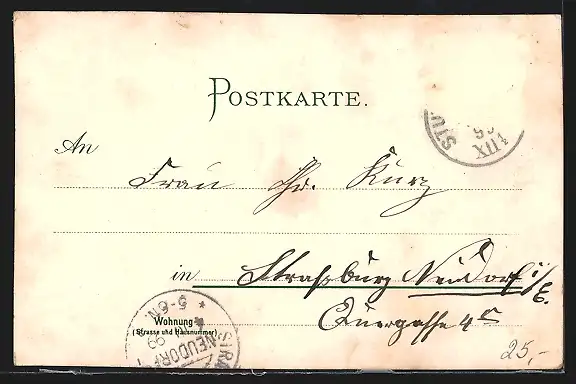 POSTKARTE.
STU
XII
An
Frau Chr. Kurz
in Straßburg Neudorf i/E.
Quergasse 4
5-6N.
Wohnung
(Strasse und Hausnummer)
99
STRA
NEUDORF
25,-